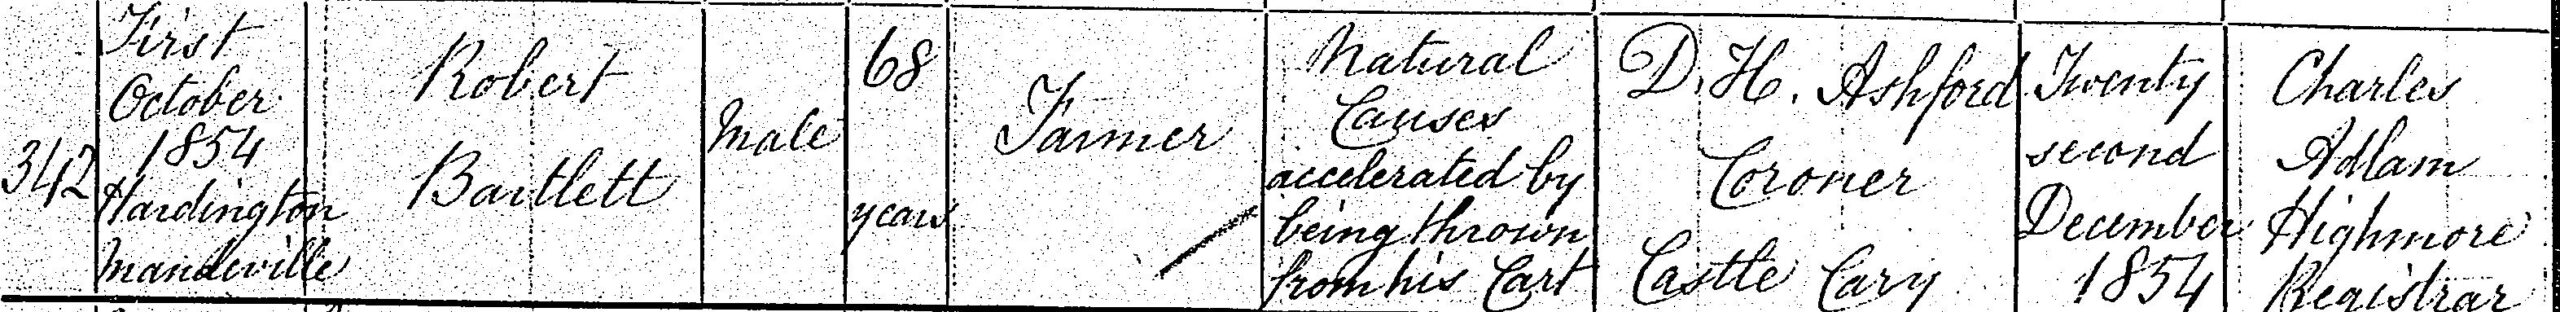 342
First
October
1854
Hardington
Mandeville
Robert
Bartlett
Male
68
years
Farmer
Natural
Causes
accelerated by
being thrown
from his Cart
D. H. Ashford
Coroner
Castle Cary
Twenty
second
December
1854
Charles
Adlam
Highmore
Registrar